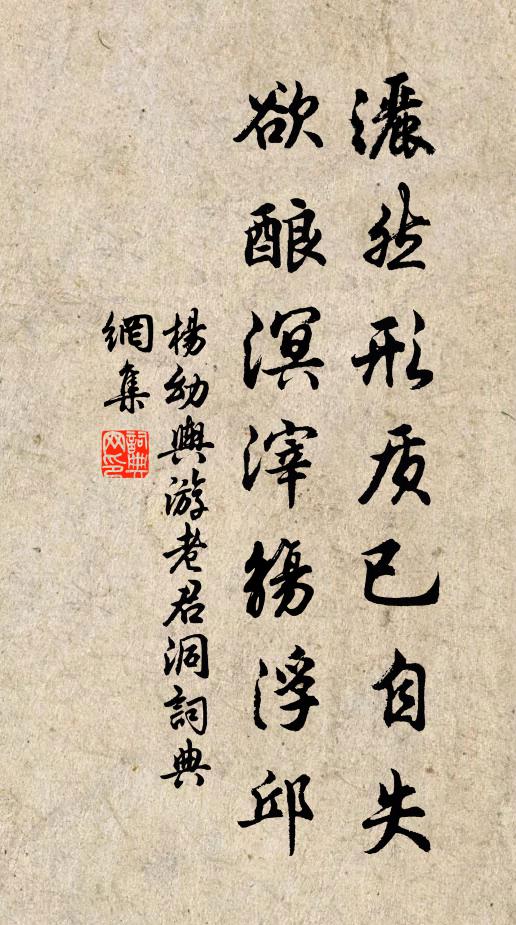 灑然形质已自失
欲酿溟滓觴浮邱
楊幼輿游老君洞詞典
網集
詞典网印